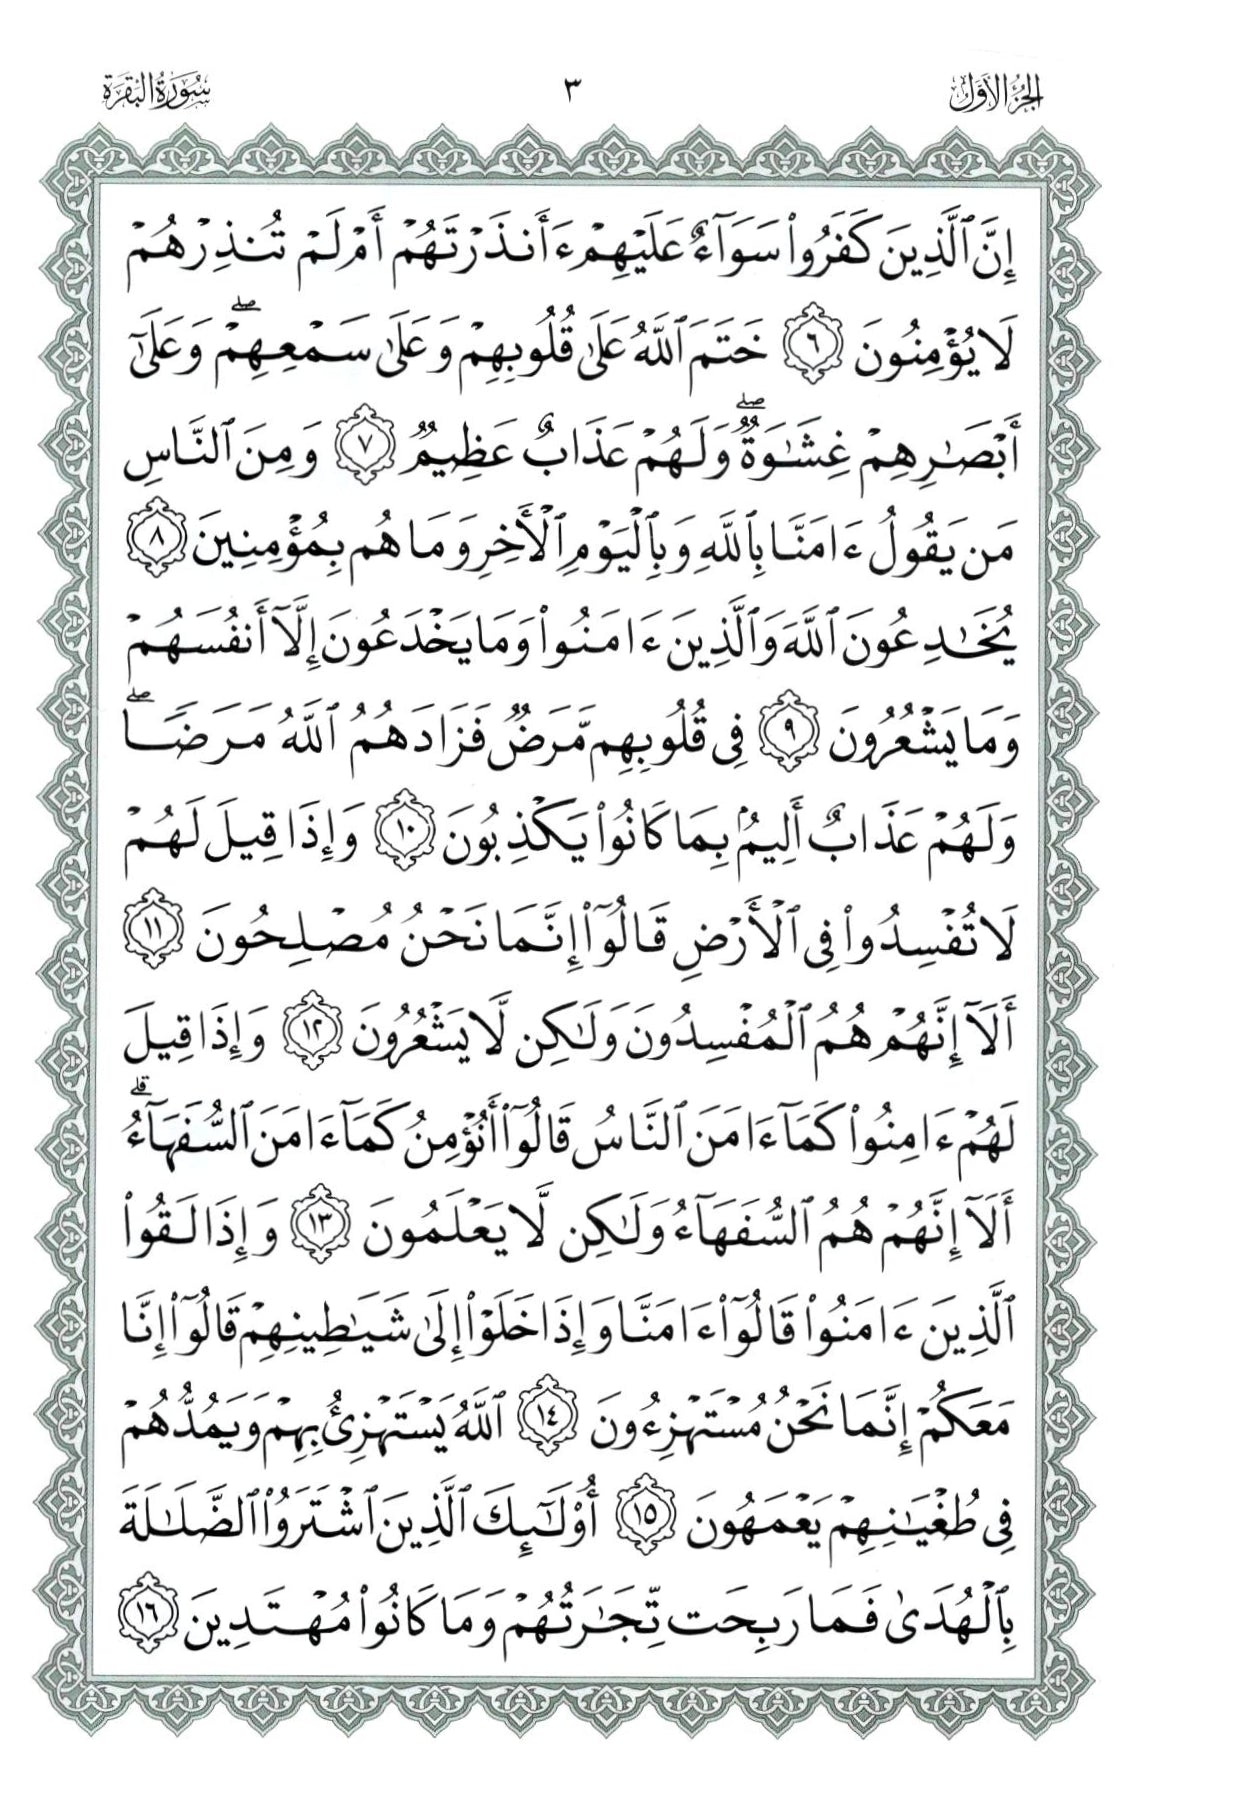 الجزء الأول
٣
سورة البقرة
إِنَّ ٱلَّذِينَ كَفَرُوا۟ سَوَآءٌ عَلَيْهِمْ ءَأَنذَرْتَهُمْ أَمْ لَمْ تُنذِرْهُمْ
لَا يُؤْمِنُونَ ٦ خَتَمَ ٱللَّهُ عَلَىٰ قُلُوبِهِمْ وَعَلَىٰ سَمْعِهِمْ ۖ وَعَلَىٰٓ
أَبْصَـٰرِهِمْ غِشَـٰوَةٌ ۖ وَلَهُمْ عَذَابٌ عَظِيمٌ ٧ وَمِنَ ٱلنَّاسِ
مَن يَقُولُ ءَامَنَّا بِٱللَّهِ وَبِٱلْيَوْمِ ٱلْأَخِرِ وَمَا هُم بِمُؤْمِنِينَ ٨
يُخَـٰدِعُونَ ٱللَّهَ وَٱلَّذِينَ ءَامَنُوا۟ وَمَا يَخْدَعُونَ إِلَّآ أَنفُسَهُمْ
وَمَا يَشْعُرُونَ ٩ فِى قُلُوبِهِم مَّرَضٌ فَزَادَهُمُ ٱللَّهُ مَرَضًا ۖ
وَلَهُمْ عَذَابٌ أَلِيمٌۢ بِمَا كَانُوا۟ يَكْذِبُونَ ١٠ وَإِذَا قِيلَ لَهُمْ
لَا تُفْسِدُوا۟ فِى ٱلْأَرْضِ قَالُوٓا۟ إِنَّمَا نَحْنُ مُصْلِحُونَ ١١
أَلَآ إِنَّهُمْ هُمُ ٱلْمُفْسِدُونَ وَلَـٰكِن لَّا يَشْعُرُونَ ١٢ وَإِذَا قِيلَ
لَهُمْ ءَامِنُوا۟ كَمَآ ءَامَنَ ٱلنَّاسُ قَالُوٓا۟ أَنُؤْمِنُ كَمَآ ءَامَنَ ٱلسُّفَهَآءُ ۗ
أَلَآ إِنَّهُمْ هُمُ ٱلسُّفَهَآءُ وَلَـٰكِن لَّا يَعْلَمُونَ ١٣ وَإِذَا لَقُوا۟
ٱلَّذِينَ ءَامَنُوا۟ قَالُوٓا۟ ءَامَنَّا وَإِذَا خَلَوْا۟ إِلَىٰ شَيَـٰطِينِهِمْ قَالُوٓا۟ إِنَّا
مَعَكُمْ إِنَّمَا نَحْنُ مُسْتَهْزِءُونَ ١٤ ٱللَّهُ يَسْتَهْزِئُ بِهِمْ وَيَمُدُّهُمْ
فِى طُغْيَـٰنِهِمْ يَعْمَهُونَ ١٥ أُو۟لَـٰٓئِكَ ٱلَّذِينَ ٱشْتَرَوُا۟ ٱلضَّلَـٰلَةَ
بِٱلْهُدَىٰ فَمَا رَبِحَت تِّجَـٰرَتُهُمْ وَمَا كَانُوا۟ مُهْتَدِينَ ١٦